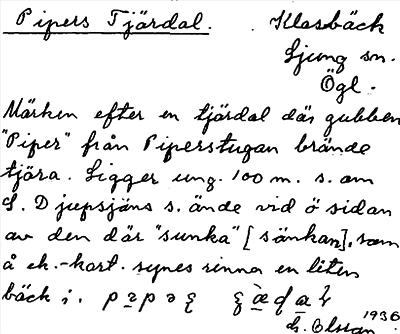 Pipers Tjärdal. Klasbäck
Ljung sn.
Ögl.
Märken efter en tjärdal där gubben
"Piper" från Piperstugan brände
tjära. Ligger ung. 100 m. s. om
L. Djupsjöns s. ände vid ö sidan
av den där "sunka" [sänkan], som
å ek.-kart. synes rinna en liten
bäck i.
1936
Olsson